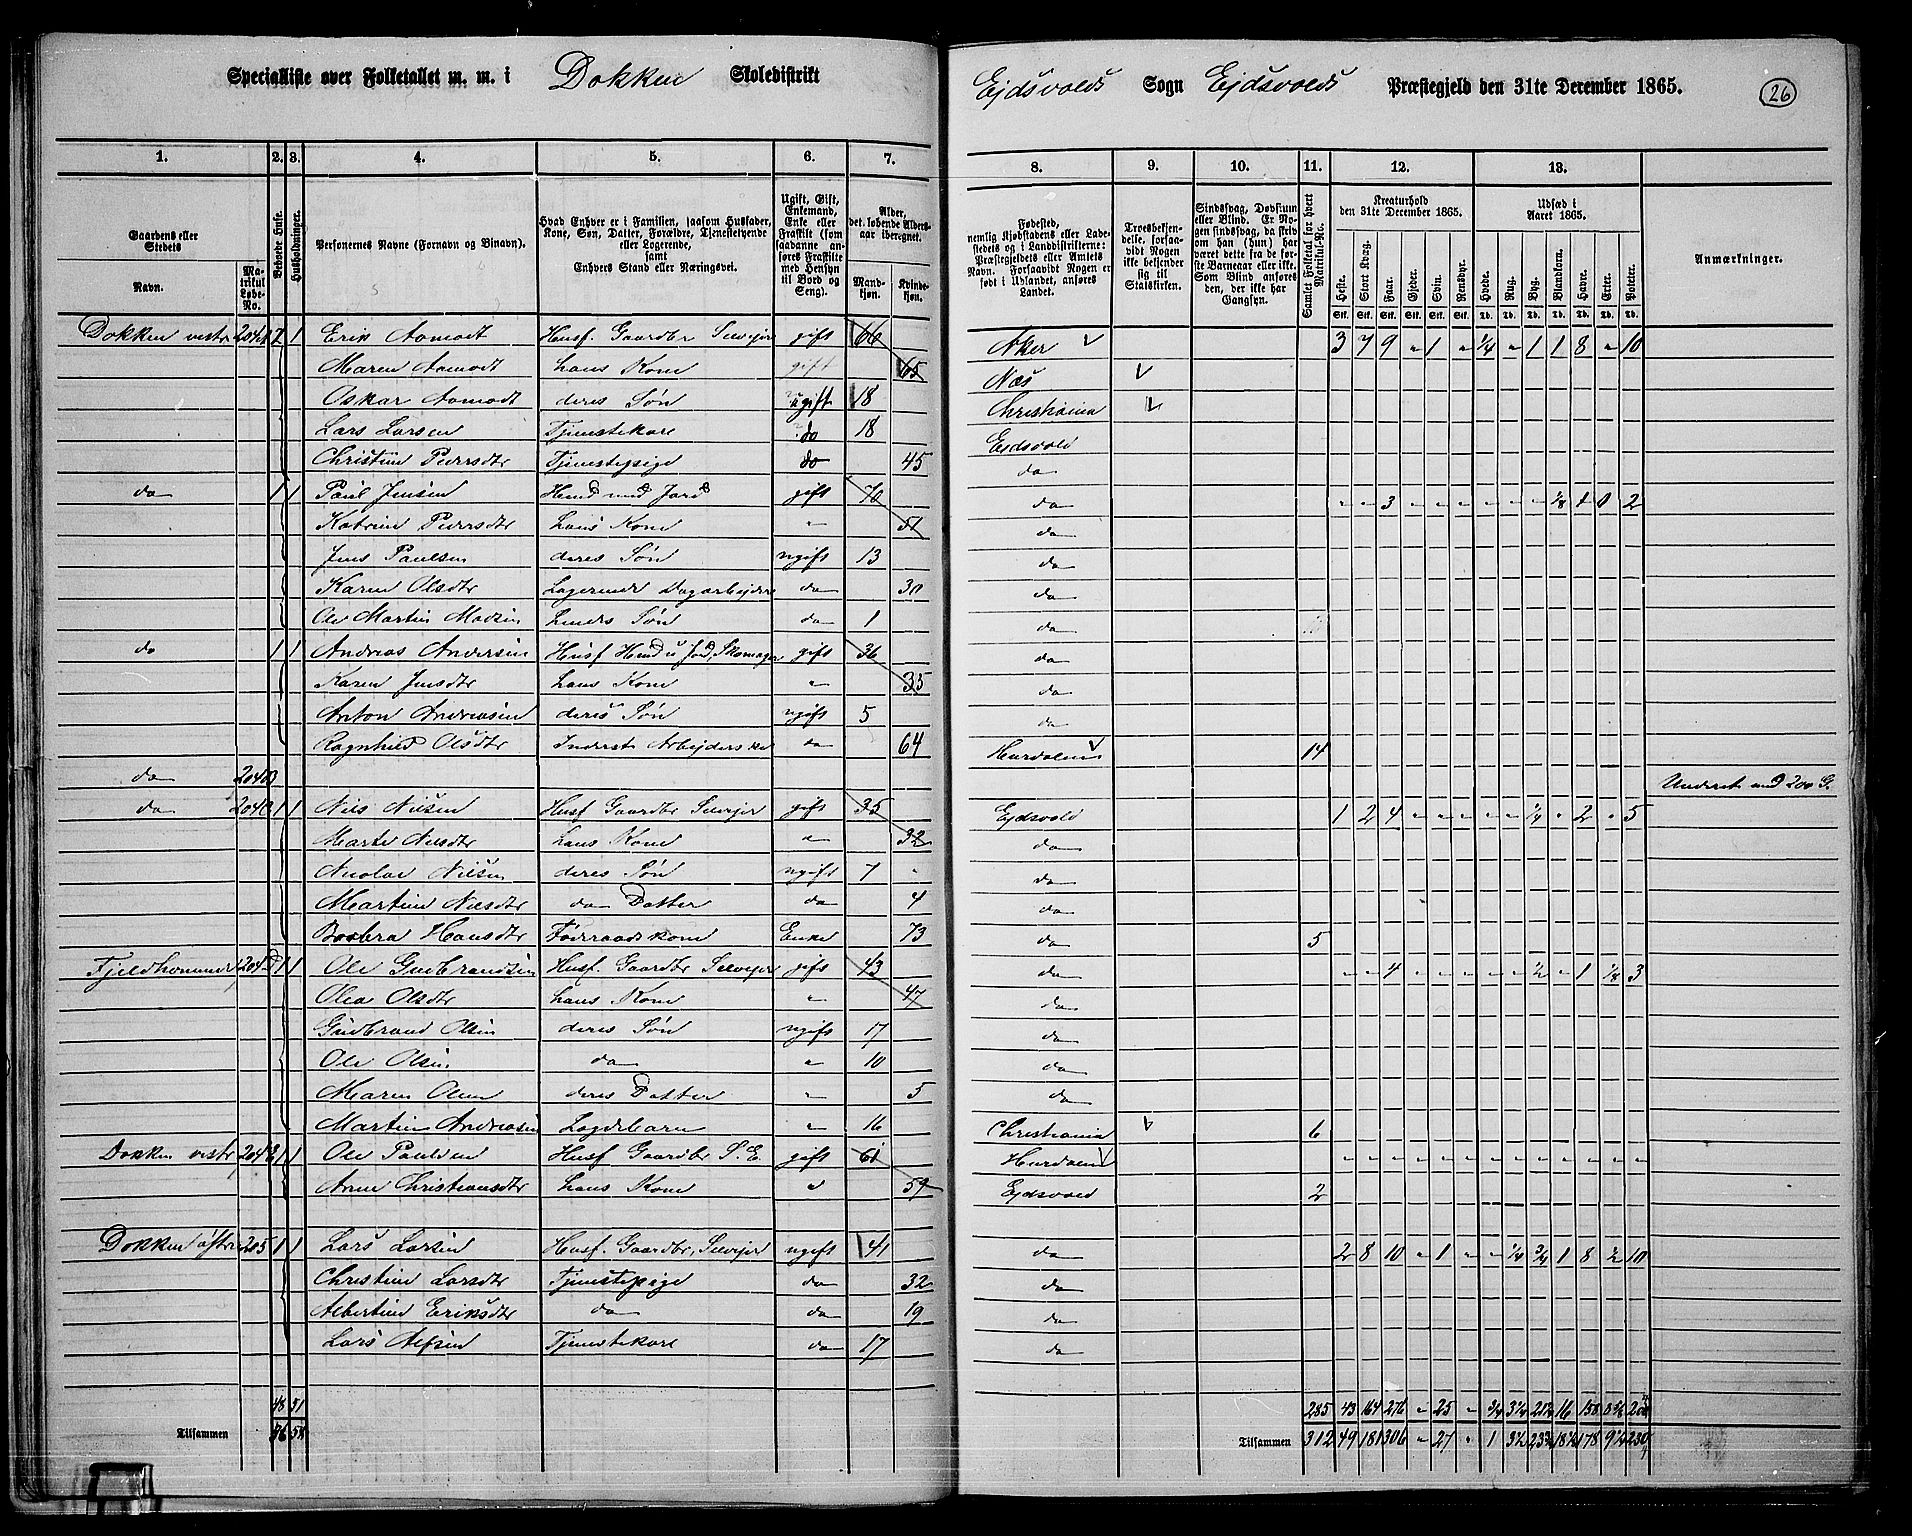 Specialliste over Folketallet m. m. i Dokken Skoledistrikt Ejdsvolds Sogn Ejdsvolds Præstegjeld den 31te December 1865. 26
1. 2. 3. 4. 5. 6. 7. 8. 9. 10. 11. 12. 13.
Gaardens eller Stedets
Navn.
Matrikul Løbe-No.
Beboede Huse.
Husholdninger.
Personernes Navne (Fornavn og Binavn).
Hvad Enhver er i Familien, saasom Husfader, Kone, Søn, Datter, Forældre, Tjenestetyende eller Logerende, samt Enhvers Stand eller Næringsvei.
Ugift, Gift, Enkemand, Enke eller Fraskilt (som saadanne anføres Fraskilte med Hensyn til Bord og Seng).
Alder, det løbende Aldersaar iberegnet.
Mandkjøn. Kvindekjøn.
Fødested, nemlig Kjøbstadens eller Ladestedets og i Landdistrikterne: Præstegjeldets eller Amtets Navn. Forsaavidt Nogen er født i Udlandet, anføres Landet.
Troesbekjendelse, forsaavidt Nogen ikke bekjender sig til Statskirken.
Sindssvag, Døvstum eller Blind. Er Nogen sindssvag, da skriv om han (hun) har været dette fra de første Barneaar eller ikke. Som Blind anføres den, der ikke har Gangsyn.
Samlet Folketal for hvert Matrikul-No.
Kreaturhold den 31te December 1865.
Heste. Stort Kvæg. Faar. Gjeder. Svin. Rensdyr.
Udsæd i Aaret 1865.
Hvede. Rug. Byg. Blandkorn. Havre. Erter. Poteter.
Anmærkninger.
Stk. Stk. Stk. Stk. Stk. Stk. Td. Td. Td. Td. Td. Td. Td.
Dokken vestre 204 1 Erik Aamodt Husf. Gaardbr Selvejer gift 66 Aker 3 7 9 " 1 " 1/4 " 1 1 8 " 10
Maren Aamodt hans Kone gift 65 Næs
Oskar Aamodt deres Søn ugift 18 Christiania
Lars Larsen Tjenestekarl do 18 Ejdsvold
Christine Pedersdtr Tjenestepige do 45 do
do 1 1 Paul Jensen Husmd med Jord gift 70 do " " 3 " " " " " " 1/8 1 2
Katrine Pedersdtr hans Kone " 51 do
Jens Paulsen deres Søn ugift 13 do
Karen Olsdtr Logerende Dagarbejderske do 30 do
Ole Martin Madsen hendes Søn do 1 do
do 1 1 Andreas Andersen Husf Husmd m Jord, Skomager gift 36 do
Karen Jensdtr hans Kone " 35 do
Anton Andreasen deres Søn ugift 5 do
Ragnhild Olsdtr Inderst Arbejderske do 64 Hurdalen 14
do 204 B Underet med 200 G.
do 204 C 1 1 Nils Nilsen Husf Gaardbr Selvejer gift 35 Ejdsvold 1 2 4 " " " " " 1/4 " 2 " 5
Marte Nilsdtr hans Kone " 32 do
Nicolai Nilsen deres Søn ugift 7 " do
Martine Nilsdtr do Datter do 4 do
Barbra Hansdtr Føderaadskone Enke 73 do 5
Fjeldhammer 204 D 1 1 Ole Gudbrandsen Husf. Gaardbr Selvejer gift 43 do " " 4 " " " " " 1/2 " 1 1/8 3
Olea Olsdtr hans Kone " 47 do
Gudbrand Olsen deres Søn ugift 17 do
Ole Olsen do " 10 do
Maren Olsen deres Datter " 5 do
Martin Andreasen Lægdebarn " 16 Christiania 6
Dokken vestre 204 E 1 1 Ole Paulsen Husf Gaardbr S. E gift 61 Hurdalen " " " " " " " " " " " " "
Anne Christiansdtr hans Kone " 59 Ejdsvold 2
Dokken østre 205 1 1 Lars Larsen Husf. Gaardbr, Selvejer ugift 41 do 2 8 10 " 1 " " 1/4 3/4 1 8 1/2 10
Christine Larsdtr Tjenestepige do 32 do
Albertine Eriksdtr do do 19 do
Lars Alfsen Tjenestekarl do 17 do
48 51 285 43 164 276 " 25 " 3/4 16 158
Tilsammen 56 58 Tilsammen 312 49 181 306 " 27 " 1 178 230